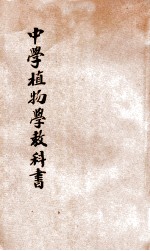 中學植物學教科書